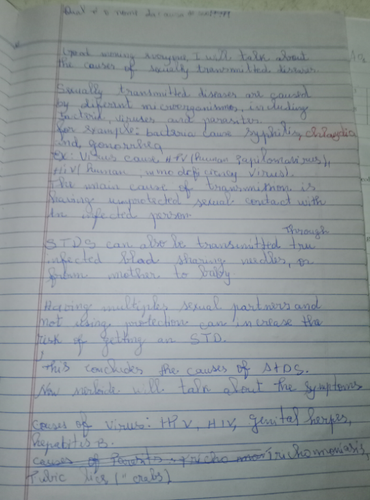 Good evening everyone I will talk about
the causes of sexually transmitted diseases
Sexually transmitted diseases are caused
by different microorganisms, including
bacteria, viruses and parasites
For example: bacteria cause syphilis, chlamydia
and gonorrhea
Ex: Virus cause HPV (human papilomavirus),
HIV (human immunodeficiency virus).
The main cause of transmition is
having unprotected sexual contact with
an infected person
Through
STDS can also be transmitted tru
infected blood sharing needles, or
from mother to baby
Having multiple sexual partners and
not using protection can increase the
risk of getting an STD.
This concludes the causes of STDS.
Now will talk about the symptoms
Causes of Virus: HPV, HIV, genital herpes,
hepatitis B.
causes of Parasits: tricho mon Trichomoniasis,
Pubic lice ("crabs)